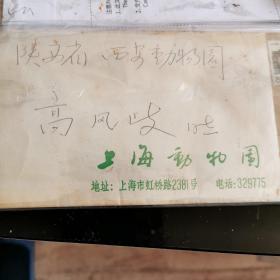 陕西省 西安動物园
高风岐 收
上海動物園
地址：上海市虹桥路2381号 电话:329775